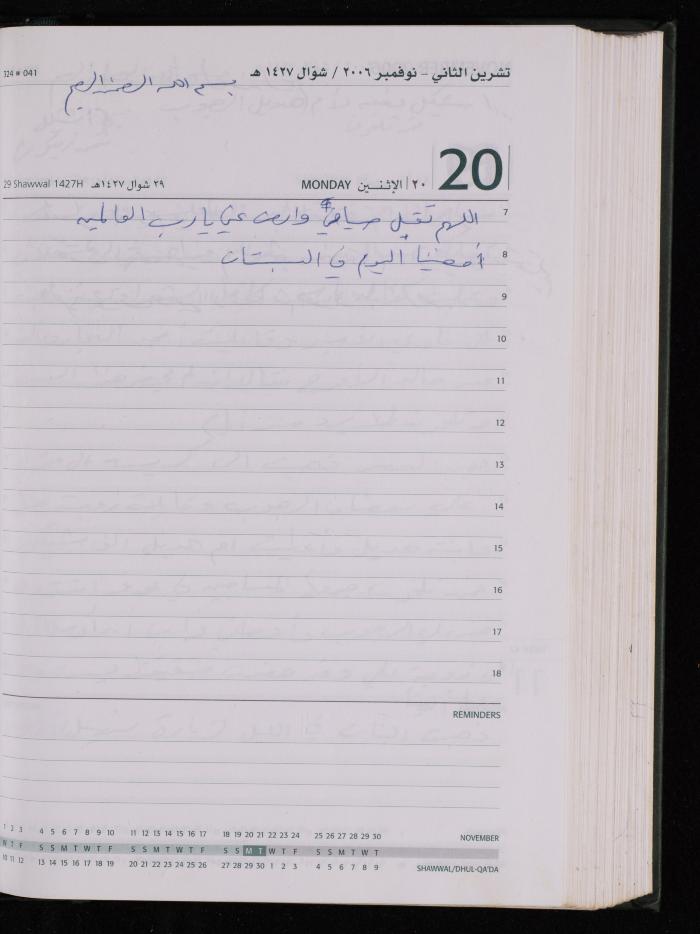 324 ■ 041
تشرين الثاني – نوفمبر ٢٠٠٦ / شوّال ١٤٢٧ هـ
بسم الله الرحمن الرحيم
20
29 Shawwal 1427H ٢٩ شوال ١٤٢٧هـ
MONDAY الإثنـــين | ٢٠
7 اللهم تقبل صيامي وارض عني يا رب العالمين
8 أمضينا اليوم في البستان
9
10
11
12
13
14
15
16
17
18
REMINDERS
1 2 3 4 5 6 7 8 9 10 11 12 13 14 15 16 17 18 19 20 21 22 23 24 25 26 27 28 29 30 NOVEMBER
W T F S S M T W T F S S M T W T F S S M T W T F S S M T W T
10 11 12 13 14 15 16 17 18 19 20 21 22 23 24 25 26 27 28 29 30 1 2 3 4 5 6 7 8 9 SHAWWAL/DHUL-QA'DA